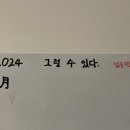 2024 그럴 수 있다.
月